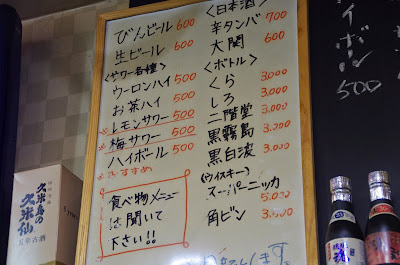 びんビール 600
生ビール 600
<サワー各種>
ウーロンハイ 500
お茶ハイ 500
レモンサワー 500
梅サワー 500
ハイボール 500
おすすめ
食べ物メニュー
は聞いて
下さい!!
<日本酒>
辛タンバ 700
大関 600
<ボトル>
くら 3,000
しろ 3,000
二階堂 3,000
黒霧島 3,200
黒白波 3,000
(ウイスキー)
スーパーニッカ
5,000
角ビン 3,500
ハイボール
500
久米島の
久米仙